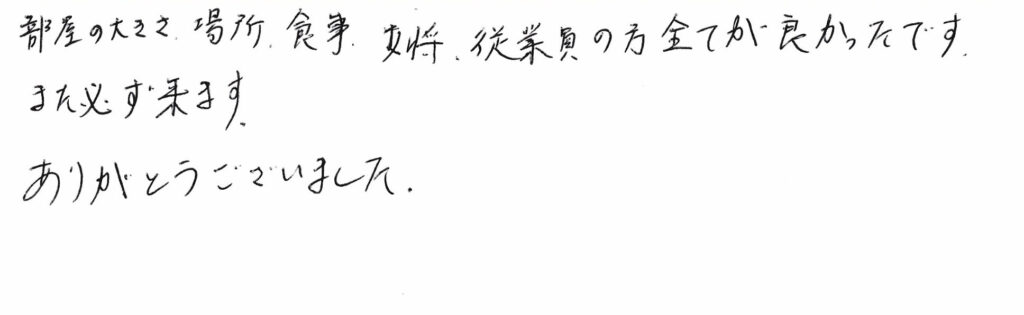 部屋の大きさ、場所、食事、女将、従業員の方全てが良かったです。
また必ず来ます。
ありがとうございました。